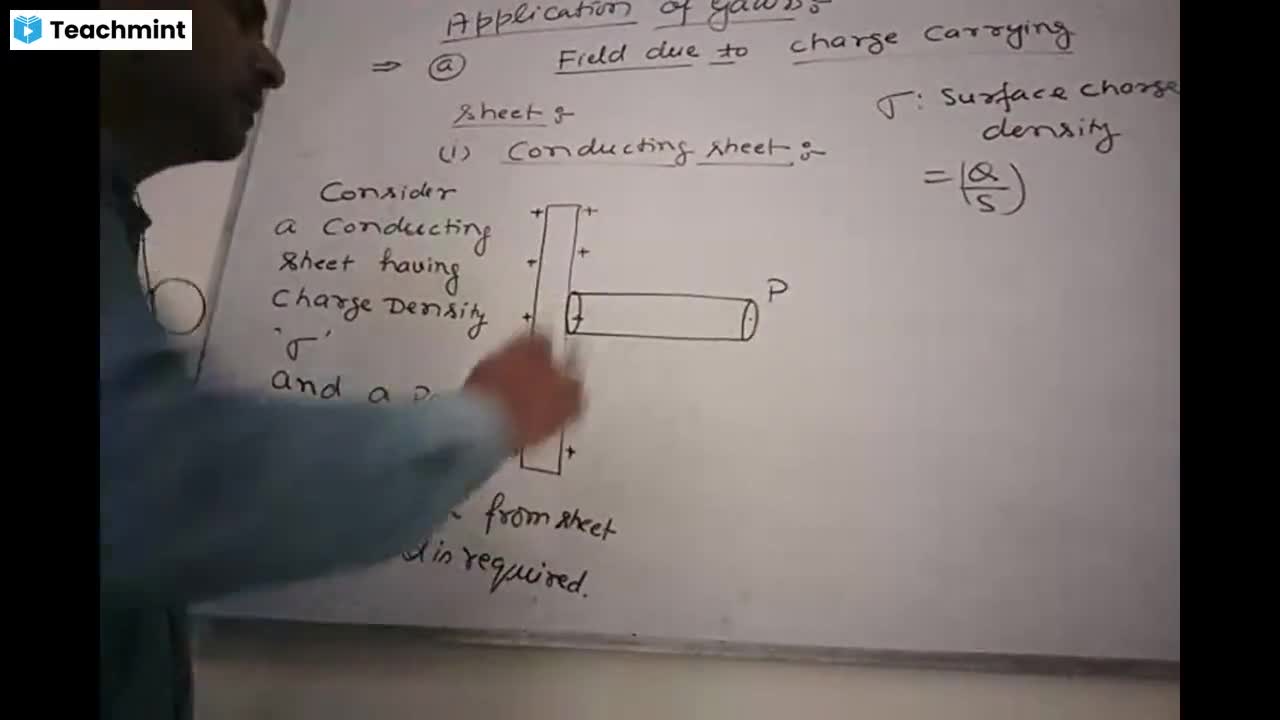 Teachmint
Application of Gauss:-
⇒ (a) Field due to charge carrying
sheet :-
(1) Conducting sheet :-
σ : surface charge
density
= (Q/S)
Consider
a conducting
sheet having
charge Density
'σ'
and a
P
from sheet
is required.